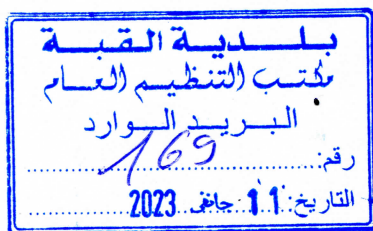 بلدية القبة
مكتب التنظيم العام
البريد الوارد
رقم: 169
التاريخ: 11 جانفي 2023